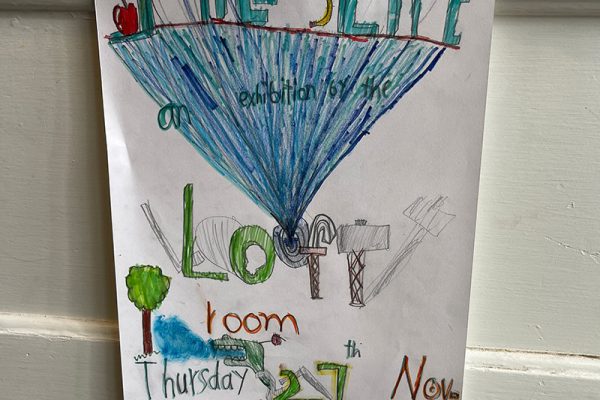 LIFE
an exhibition by the
LofT
room
Thursday 27th Nov.